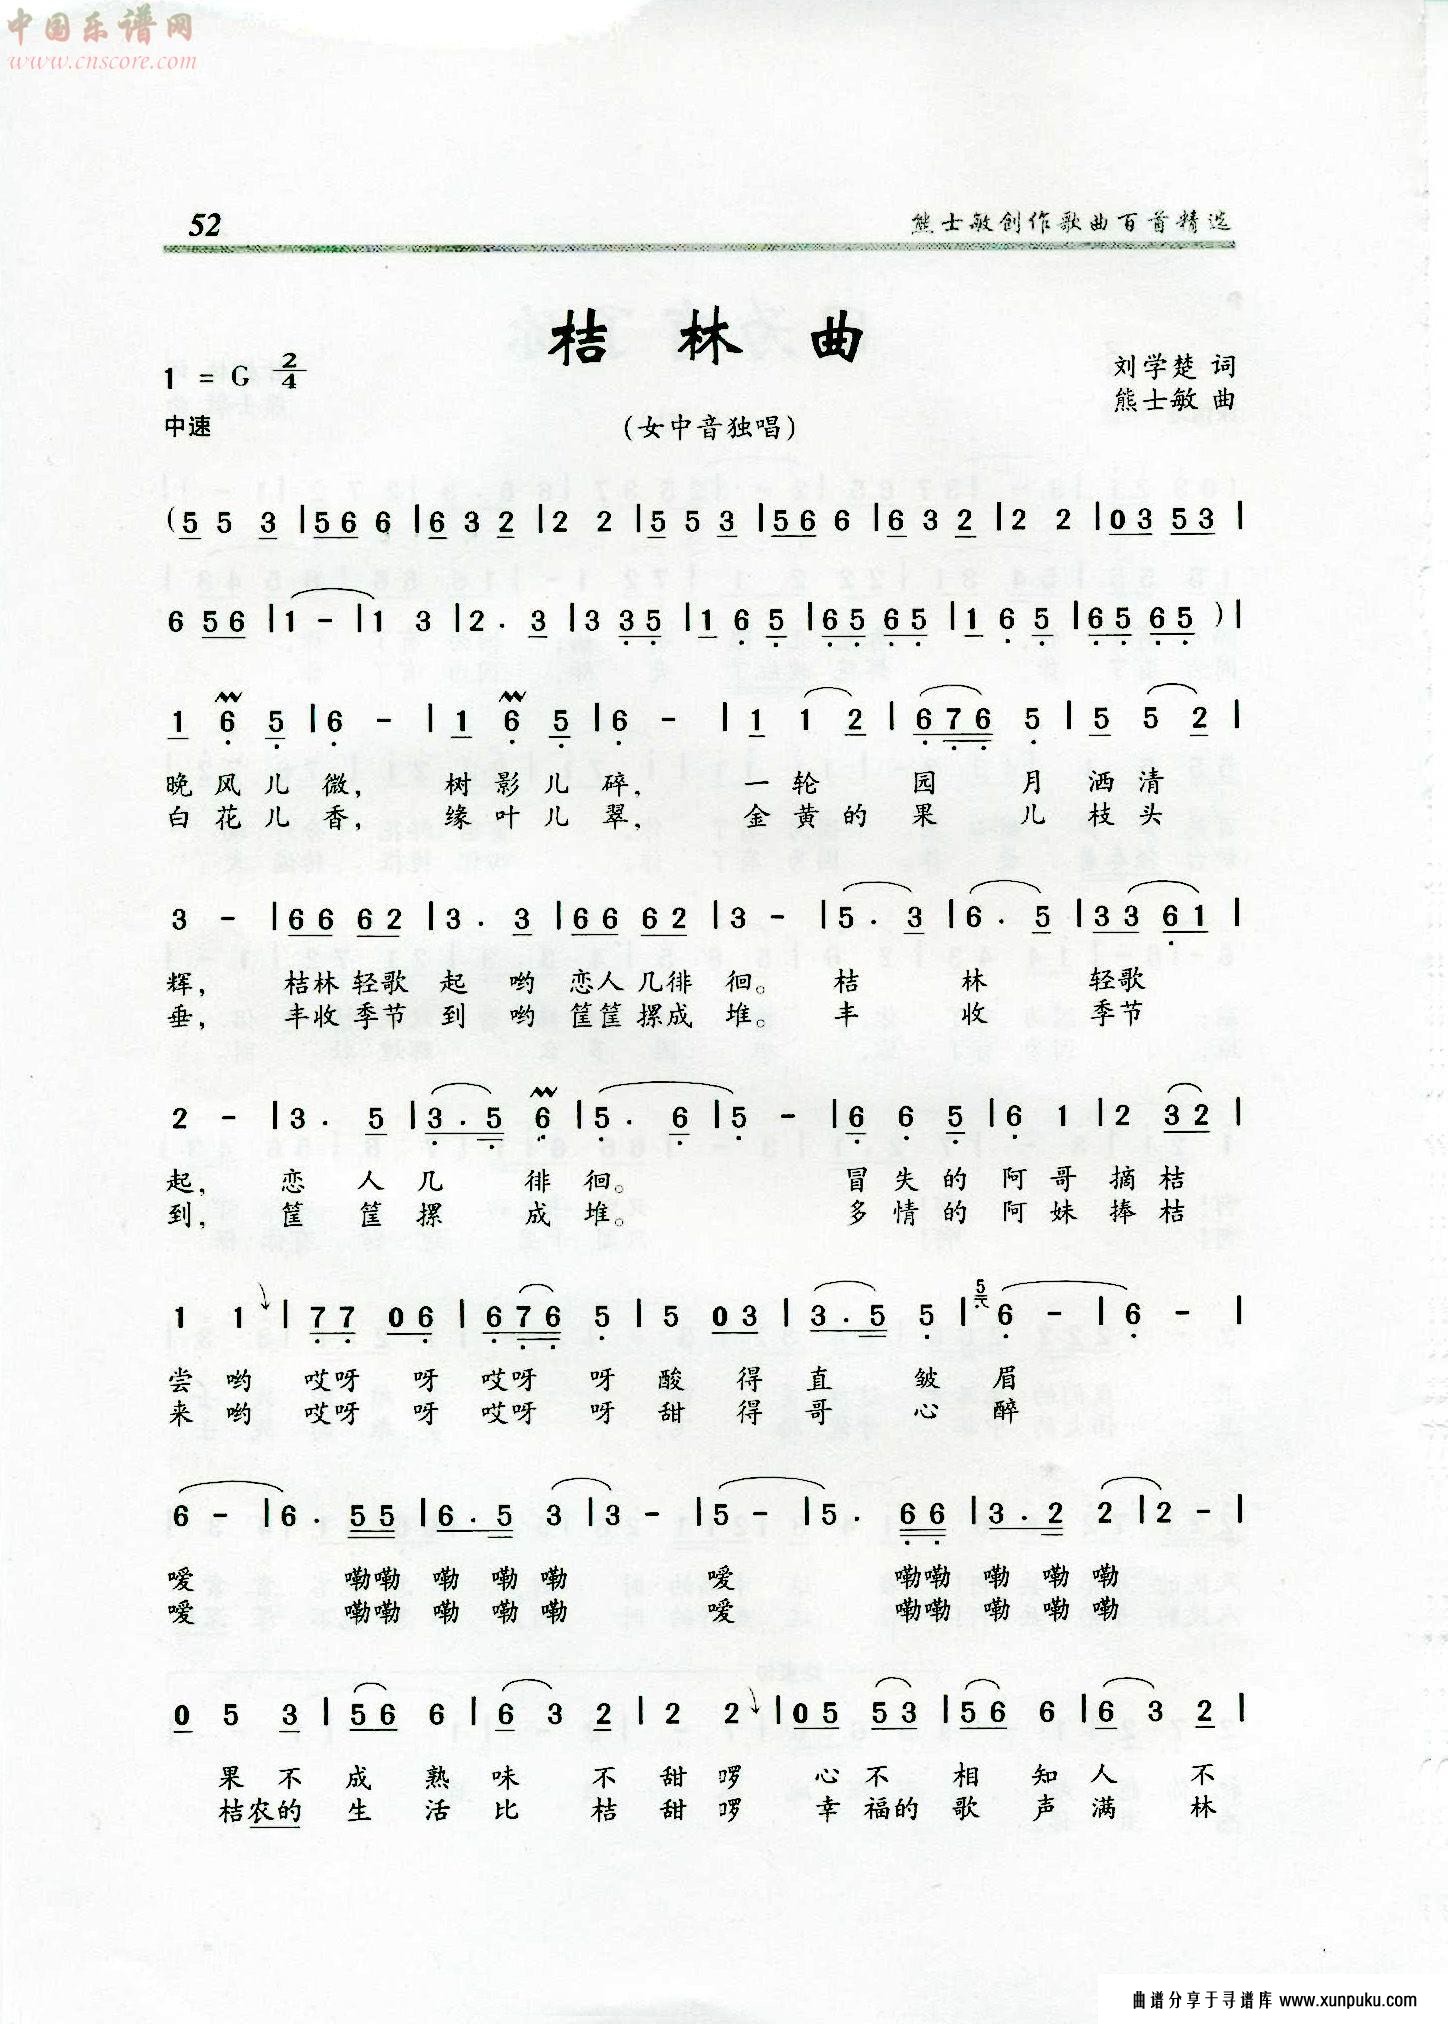 中国乐谱网
www.cnscore.com
52
熊士敏创作歌曲百首精选
桔林曲
1 = G 2/4
刘学楚 词
熊士敏 曲
中速
(女中音独唱)
(5 5 3 | 5 6 6 | 6 3 2 | 2 2 | 5 5 3 | 5 6 6 | 6 3 2 | 2 2 | 0 3 5 3 |
6 5 6 | 1 - | 1 3 | 2 . 3 | 3 3 5 | 1 6 5 | 6 5 6 5 | 1 6 5 | 6 5 6 5 ) |
1 6 5 | 6 - | 1 6 5 | 6 - | 1 1 2 | 6 7 6 5 | 5 5 2 |
晚风儿微， 树影儿碎， 一轮园月洒清
白花儿香， 缘叶儿翠， 金黄的果儿枝头
3 - | 6 6 6 2 | 3 . 3 | 6 6 6 2 | 3 - | 5 . 3 | 6 . 5 | 3 3 6 1 |
辉， 桔林轻歌起哟恋人几徘徊。 桔林轻歌
垂， 丰收季节到哟筐筐摞成堆。 丰收季节
2 - | 3 . 5 | 3 . 5 6 | 5 . 6 | 5 - | 6 6 5 | 6 1 | 2 3 2 |
起， 恋人几徘徊。 冒失的阿哥摘桔
到， 筐筐摞成堆。 多情的阿妹捧桔
1 1 | 7 7 0 6 | 6 7 6 5 | 5 0 3 | 3 . 5 5 | 5 6 - | 6 - |
尝哟哎呀呀哎呀呀酸得直皱眉
来哟哎呀呀哎呀呀甜得哥心醉
6 - | 6 . 5 5 | 6 . 5 3 | 3 - | 5 - | 5 . 6 6 | 3 . 2 2 | 2 - |
嗳 嘞嘞嘞嘞嘞 嗳 嘞嘞嘞嘞嘞
嗳 嘞嘞嘞嘞嘞 嗳 嘞嘞嘞嘞嘞
0 5 3 | 5 6 6 | 6 3 2 | 2 2 | 0 5 5 3 | 5 6 6 | 6 3 2 |
果不成熟味不甜啰心不相知人不
桔农的生活比桔甜啰幸福的歌声满林
曲谱分享于寻谱库 www.xunpuku.com